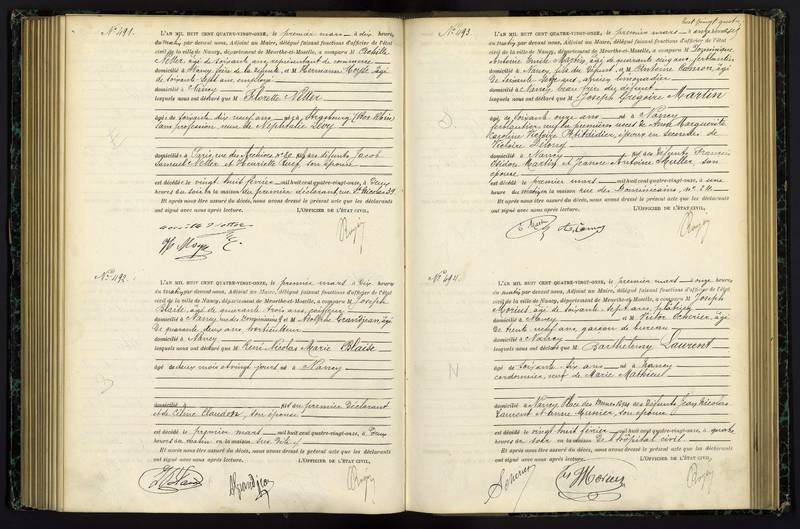 N° 491.
L'AN MIL HUIT CENT QUATRE-VINGT-ONZE, le premier mars à dix heures
du matin par devant nous, Adjoint au Maire, délégué faisant fonctions d'officier de l'état
civil de la ville de Nancy, département de Meurthe-et-Moselle, a comparu M Achille
Netter, âgé de soixante ans, représentant de commerce
domicilié à Nancy, frère de la défunte, et M Hermann âgé
de soixante-sept ans, employé
domicilié à Nancy
lesquels nous ont déclaré que M Florette Netter
âgée de soixante dix neuf ans née à Strasbourg (Bas Rhin)
sans profession, veuve de Nephtalie Lévy
domiciliée à Paris rue des Archives n° 20 fille des défunts Jacob
Samuel Netter et Henriette son épouse
est décédée le vingt huit février mil huit cent quatre-vingt-onze, à deux
heures du soir en la maison du premier déclarant, rue St Nicolas 39
Et après nous être assuré du décès, nous avons dressé le présent acte que les déclarants
ont signé avec nous après lecture. L'OFFICIER DE L'ÉTAT CIVIL,
N° 492.
L'AN MIL HUIT CENT QUATRE-VINGT-ONZE, le premier mars à dix heures
du matin par devant nous, Adjoint au Maire, délégué faisant fonctions d'officier de l'état
civil de la ville de Nancy, département de Meurthe-et-Moselle, a comparu M Joseph
Blaise, âgé de quarante trois ans,
domicilié à Nancy, et M Adolphe Grandjean, âgé
de quarante deux ans, horticulteur
domicilié à Nancy
lesquels nous ont déclaré que M René Nicolas Marie Blaise
âgé de deux mois et vingt jours né à Nancy
domicilié à fils du premier déclarant
et de Céline Claudon, son épouse
est décédé le premier mars mil huit cent quatre-vingt-onze, à deux
heures du matin en la maison
Et après nous être assuré du décès, nous avons dressé le présent acte que les déclarants
ont signé avec nous après lecture. L'OFFICIER DE L'ÉTAT CIVIL,
N° 493.
L'AN MIL HUIT CENT QUATRE-VINGT-ONZE, le premier mars à onze heures
du matin par devant nous, Adjoint au Maire, délégué faisant fonctions d'officier de l'état
civil de la ville de Nancy, département de Meurthe-et-Moselle, a comparu M Dominique
Antoine Emile Martin, âgé de quarante cinq ans, ferblantier
domicilié à Nancy, fils du défunt, et M Antoine âgé
de soixante ans, ancien limonadier
domicilié à Nancy, beau frère du défunt
lesquels nous ont déclaré que M Joseph Grégoire Martin
âgé de soixante onze ans né à Nancy
ferblantier, veuf en premières noces de Anne Marguerite
Caroline Victoire Petitdidier, époux en secondes de
Victoire Delong
domicilié à Nancy fils des défunts François
Martin et Jeanne Antoine Muller, son
épouse
est décédé le premier mars mil huit cent quatre-vingt-onze, à une
heure du matin en la maison rue des Dominicains, n° 24
Et après nous être assuré du décès, nous avons dressé le présent acte que les déclarants
ont signé avec nous après lecture. L'OFFICIER DE L'ÉTAT CIVIL,
N° 494.
L'AN MIL HUIT CENT QUATRE-VINGT-ONZE, le premier mars à onze heures
du matin par devant nous, Adjoint au Maire, délégué faisant fonctions d'officier de l'état
civil de la ville de Nancy, département de Meurthe-et-Moselle, a comparu M Joseph
âgé de soixante sept ans,
domicilié à Nancy et M Victor Scherier, âgé
de trente neuf ans, garçon de bureau
domicilié à Nancy
lesquels nous ont déclaré que M Barthélemy Laurent
âgé de soixante dix ans né à Nancy
cordonnier, veuf de Marie Mathieu
domicilié à Nancy, Place des fils des défunts Jean Nicolas
Laurent et Anne Munier, son épouse
est décédé le vingt huit février mil huit cent quatre-vingt-onze, à quatre
heures du soir en la maison de l'hôpital civil
Et après nous être assuré du décès, nous avons dressé le présent acte que les déclarants
ont signé avec nous après lecture. L'OFFICIER DE L'ÉTAT CIVIL,